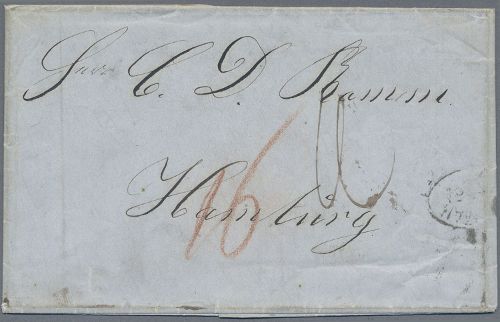 Herr C. D. Ramm.
Hamburg
16